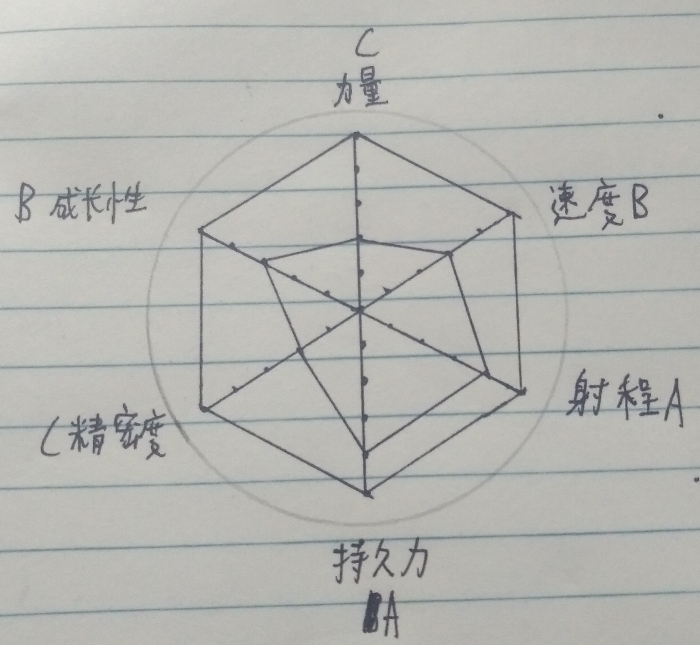 C
力量
B 成长性
速度B
射程A
C精密度
持久力
A